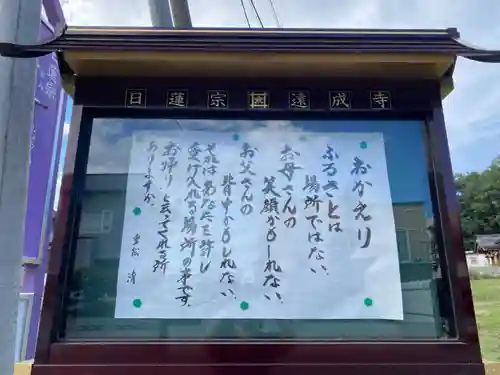 日蓮宗 遠成寺
おかえり
ふるさとは
場所ではない。
お母さんの
笑顔かもしれない
お父さんの
背中かもしれない。
それはあなたを許し
受け入れる場所の事です。
お帰りと言ってくれる所
ありますか。